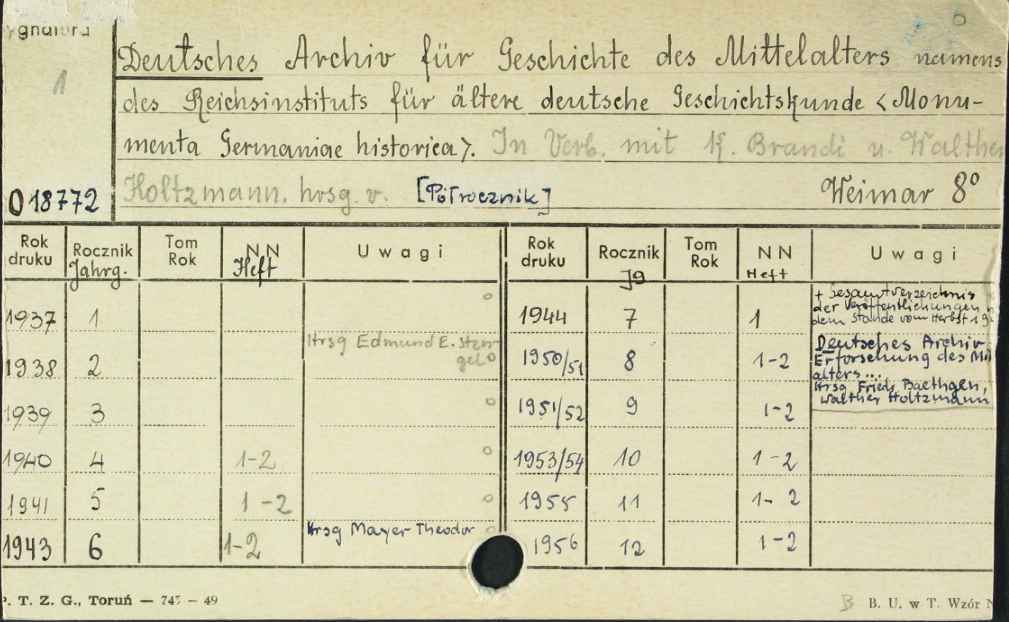 ygnatura
1
Deutsches Archiv für Geschichte des Mittelalters namens
des Reichsinstituts für ältere deutsche Geschichtskunde <Monu-
menta Germaniae historica>. In Verb. mit K. Brandi u. Walther
018772 Holtzmann. hrsg. v. [Półrocznik] Weimar 8°
Rok druku Rocznik Jahrg. Tom Rok NN Heft Uwagi Rok druku Rocznik Jg Tom Rok NN Heft Uwagi
+ Gesamtverzeichnis
der Veröffentlichungen
1937 1 1944 7 1 dem Stande vom Herbst
Hrsg Edmund E. Sten-
gel
1938 2 1950/51 8 1-2 Deutsches Archiv
Erforschung des Mit
alters...
Hrsg Friedr. Baethgen,
Walther Holtzmann
1939 3 1951/52 9 1-2
1940 4 1-2 1953/54 10 1-2
1941 5 1-2 1955 11 1-2
1943 6 1-2 Hrsg Mayer Theodor 1956 12 1-2
P. T. Z. G., Toruń — 745 — 49 B B. U. w T. Wzór